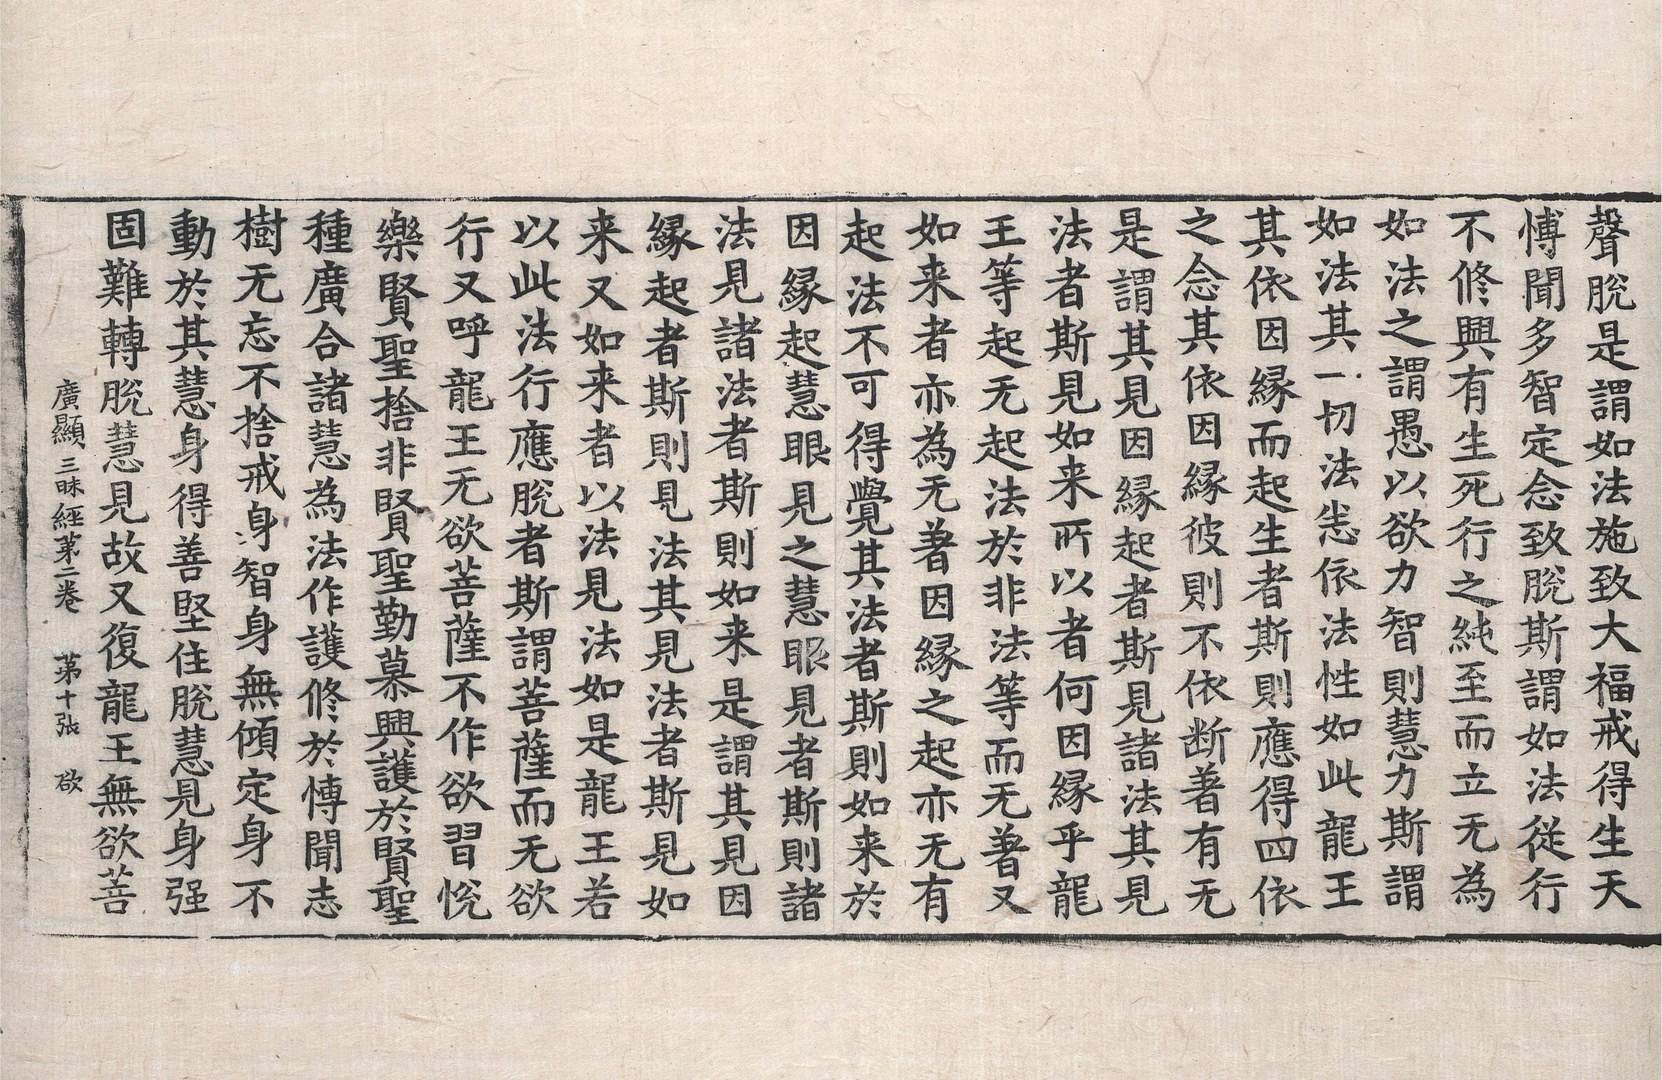 聲脫是謂如法施致大福戒得生天
愽聞多智定念致脫斯謂如法從行
不修興有生死行之純至而立无為
如法之謂愚以欲力智則慧力斯謂
如法其一切法恙依法性如此龍王
其依因縁而起生者斯則應得四依
之念其依因縁彼則不依断著有无
是謂其見因縁起者斯見諸法其見
法者斯見如来所以者何因縁乎龍
王等起无起法於非法等而无著又
如来者亦為无著因縁之起亦无有
起法不可得覺其法者斯則如来於
因縁起慧眼見之慧眼見者斯則諸
法見諸法者斯則如来是謂其見因
縁起者斯則見法其見法者斯見如
来又如来者以法見法如是龍王若
以此法行應脫者斯謂菩薩而无欲
行又呼龍王无欲菩薩不作欲習恱
樂賢聖捨非賢聖勤慕興護於賢聖
種廣合諸慧為法作護修於愽聞志
樹无忘不捨戒身智身無傾定身不
動於其慧身得善堅住脫慧見身强
固難轉脫慧見故又復龍王無欲菩
廣顯三昧經第二卷　第十張　欲